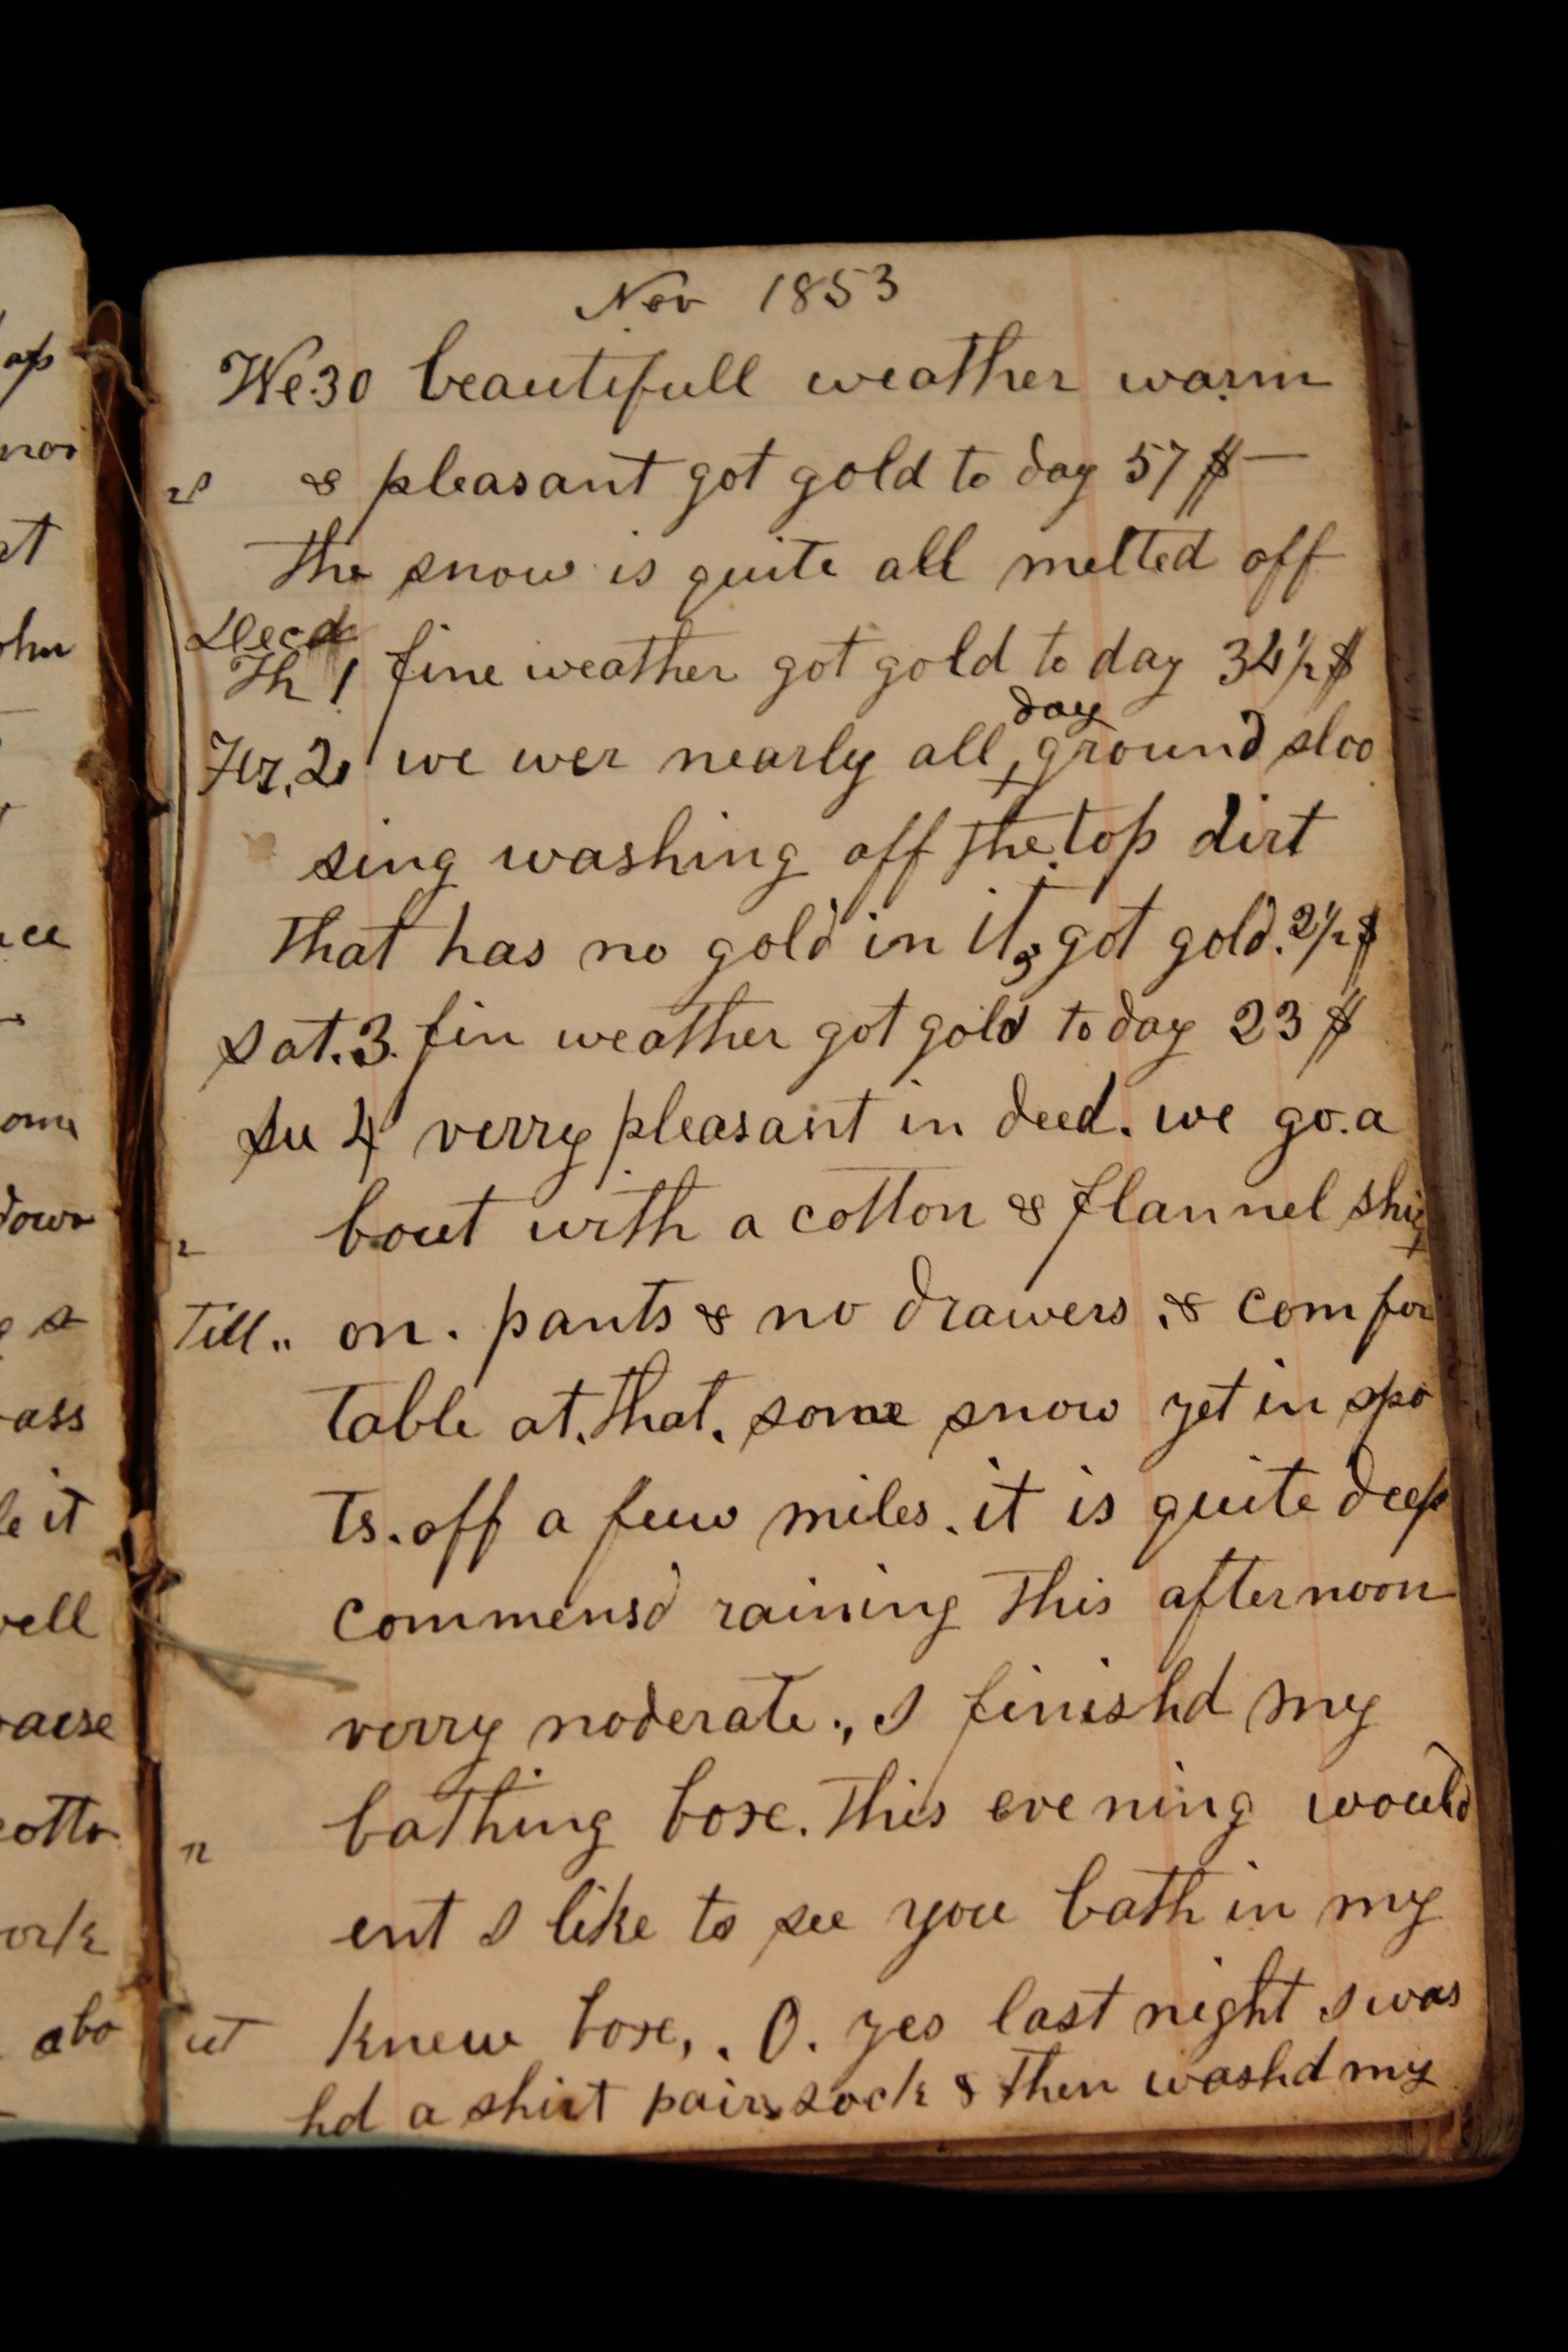 Nov 1853
We.30 beautifull weather warm
& pleasant got gold to day 57 $ —
the snow is quite all melted off
Decd
Th 1 fine weather got gold to day 34½ $
day
Fr. 2 we wer nearly all ground sloo
sing washing off the top dirt
that has no gold in it, got gold. 2½ $
Sat. 3. fin weather got gold to day 23 $
Su 4 verry pleasant in deed. we go. a
bout with a cotton & flannel shirt
on. pants & no drawers. & comfor
table at. that. some snow yet in spo
ts. off a few miles. it is quite deep
commensd raining this afternoon
verry noderate., I finishd my
bathing boxe. this evening would
ent I like to see you bath in my
knew boxe, . O. yes last night I was
hd a shirt pair sock & then washd my
ap
nor
at
ohn
ce
down
g s
Till..
ass
le it
vell
raise
cotto
n
ork
abo
ut